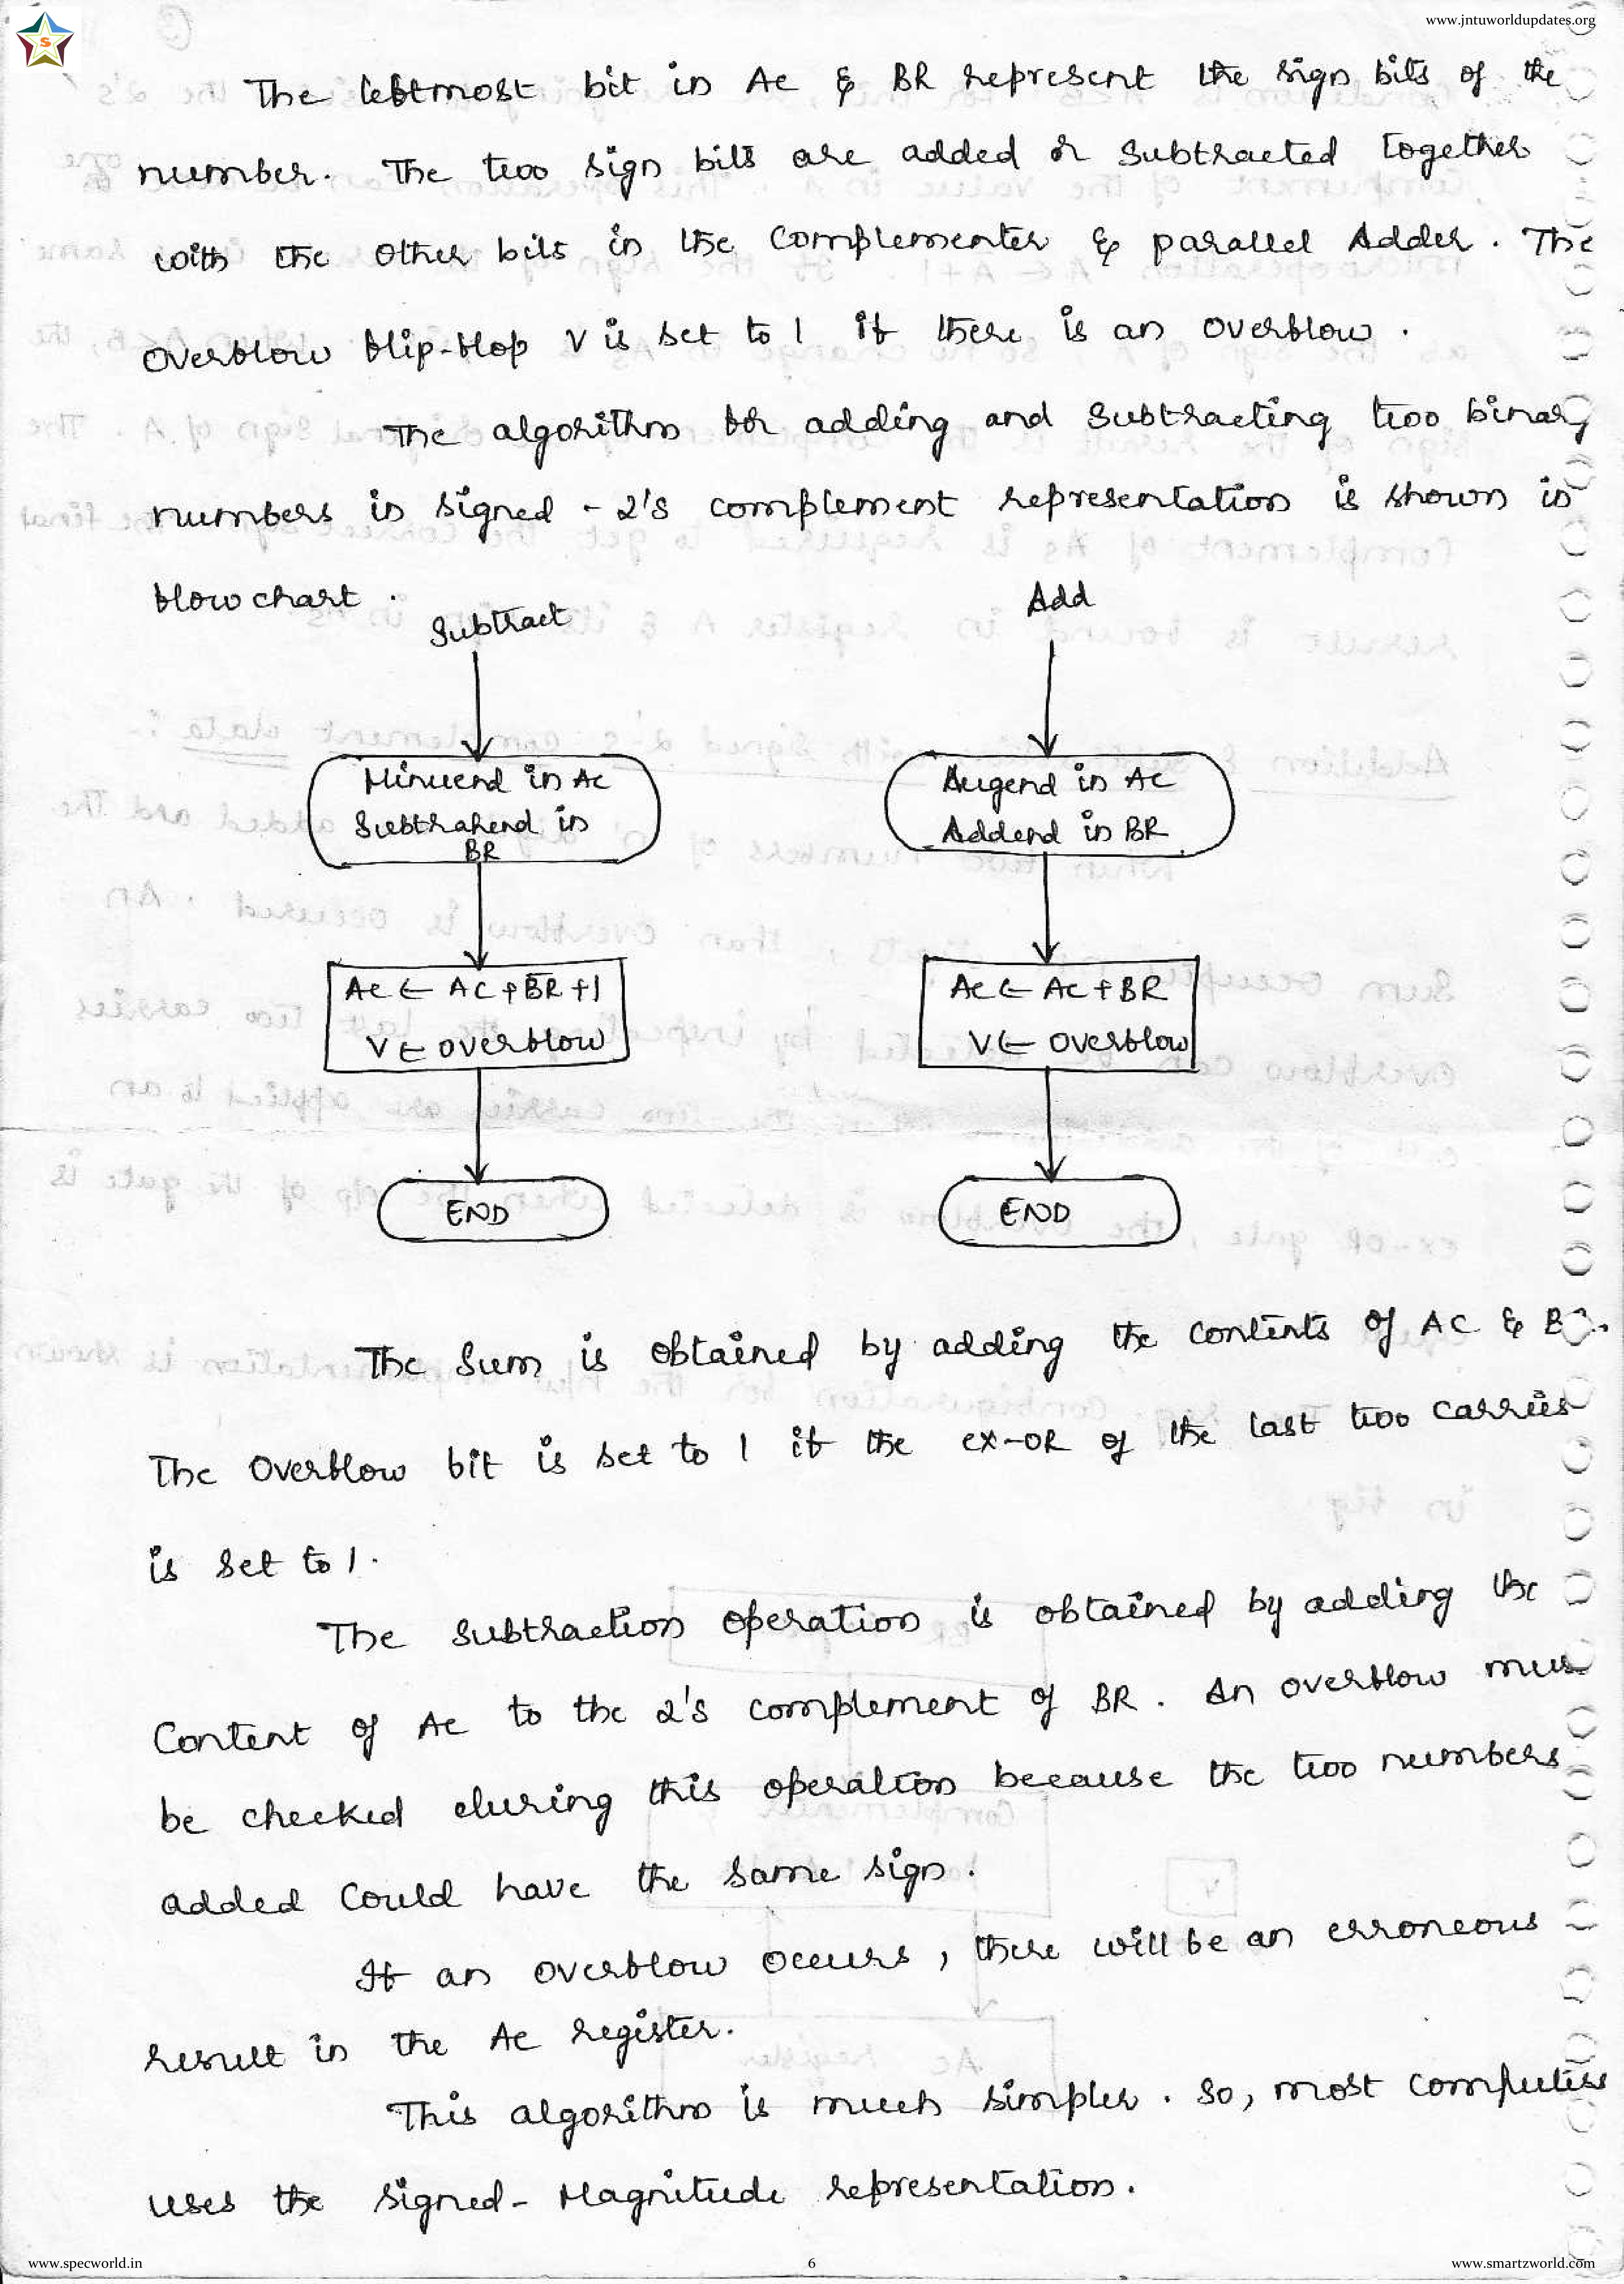 www.jntuworldupdates.org
S
The leftmost bit in AC & BR represent the sign bits of the
number. The two sign bits are added or subtracted together
with the other bits in the complementer & parallel Adder. The
overflow flip-flop V is set to 1 if there is an overflow.
The algorithm for adding and subtracting two binary
numbers in signed-2's complement representation is shown in
flow chart.
Subtract
Add
Minuend in AC
Subtrahend in
BR
Augend in AC
Addend in BR
AC ← AC + B̅R̅ + 1
V ← overflow
AC ← AC + BR
V ← overflow
END
END
The sum is obtained by adding the contents of AC &
The overflow bit is set to 1 if the ex-OR of the last two carries
is set to 1.
The subtraction operation is obtained by adding the
content of AC to the 2's complement of BR. An overflow
be checked during this operation because the two numbers
added could have the same sign.
If an overflow occurs, there will be an erroneous
result in the AC register.
This algorithm is much simpler. So, most computers
uses the signed-Magnitude representation.
www.specworld.in
6
www.smartzworld.com